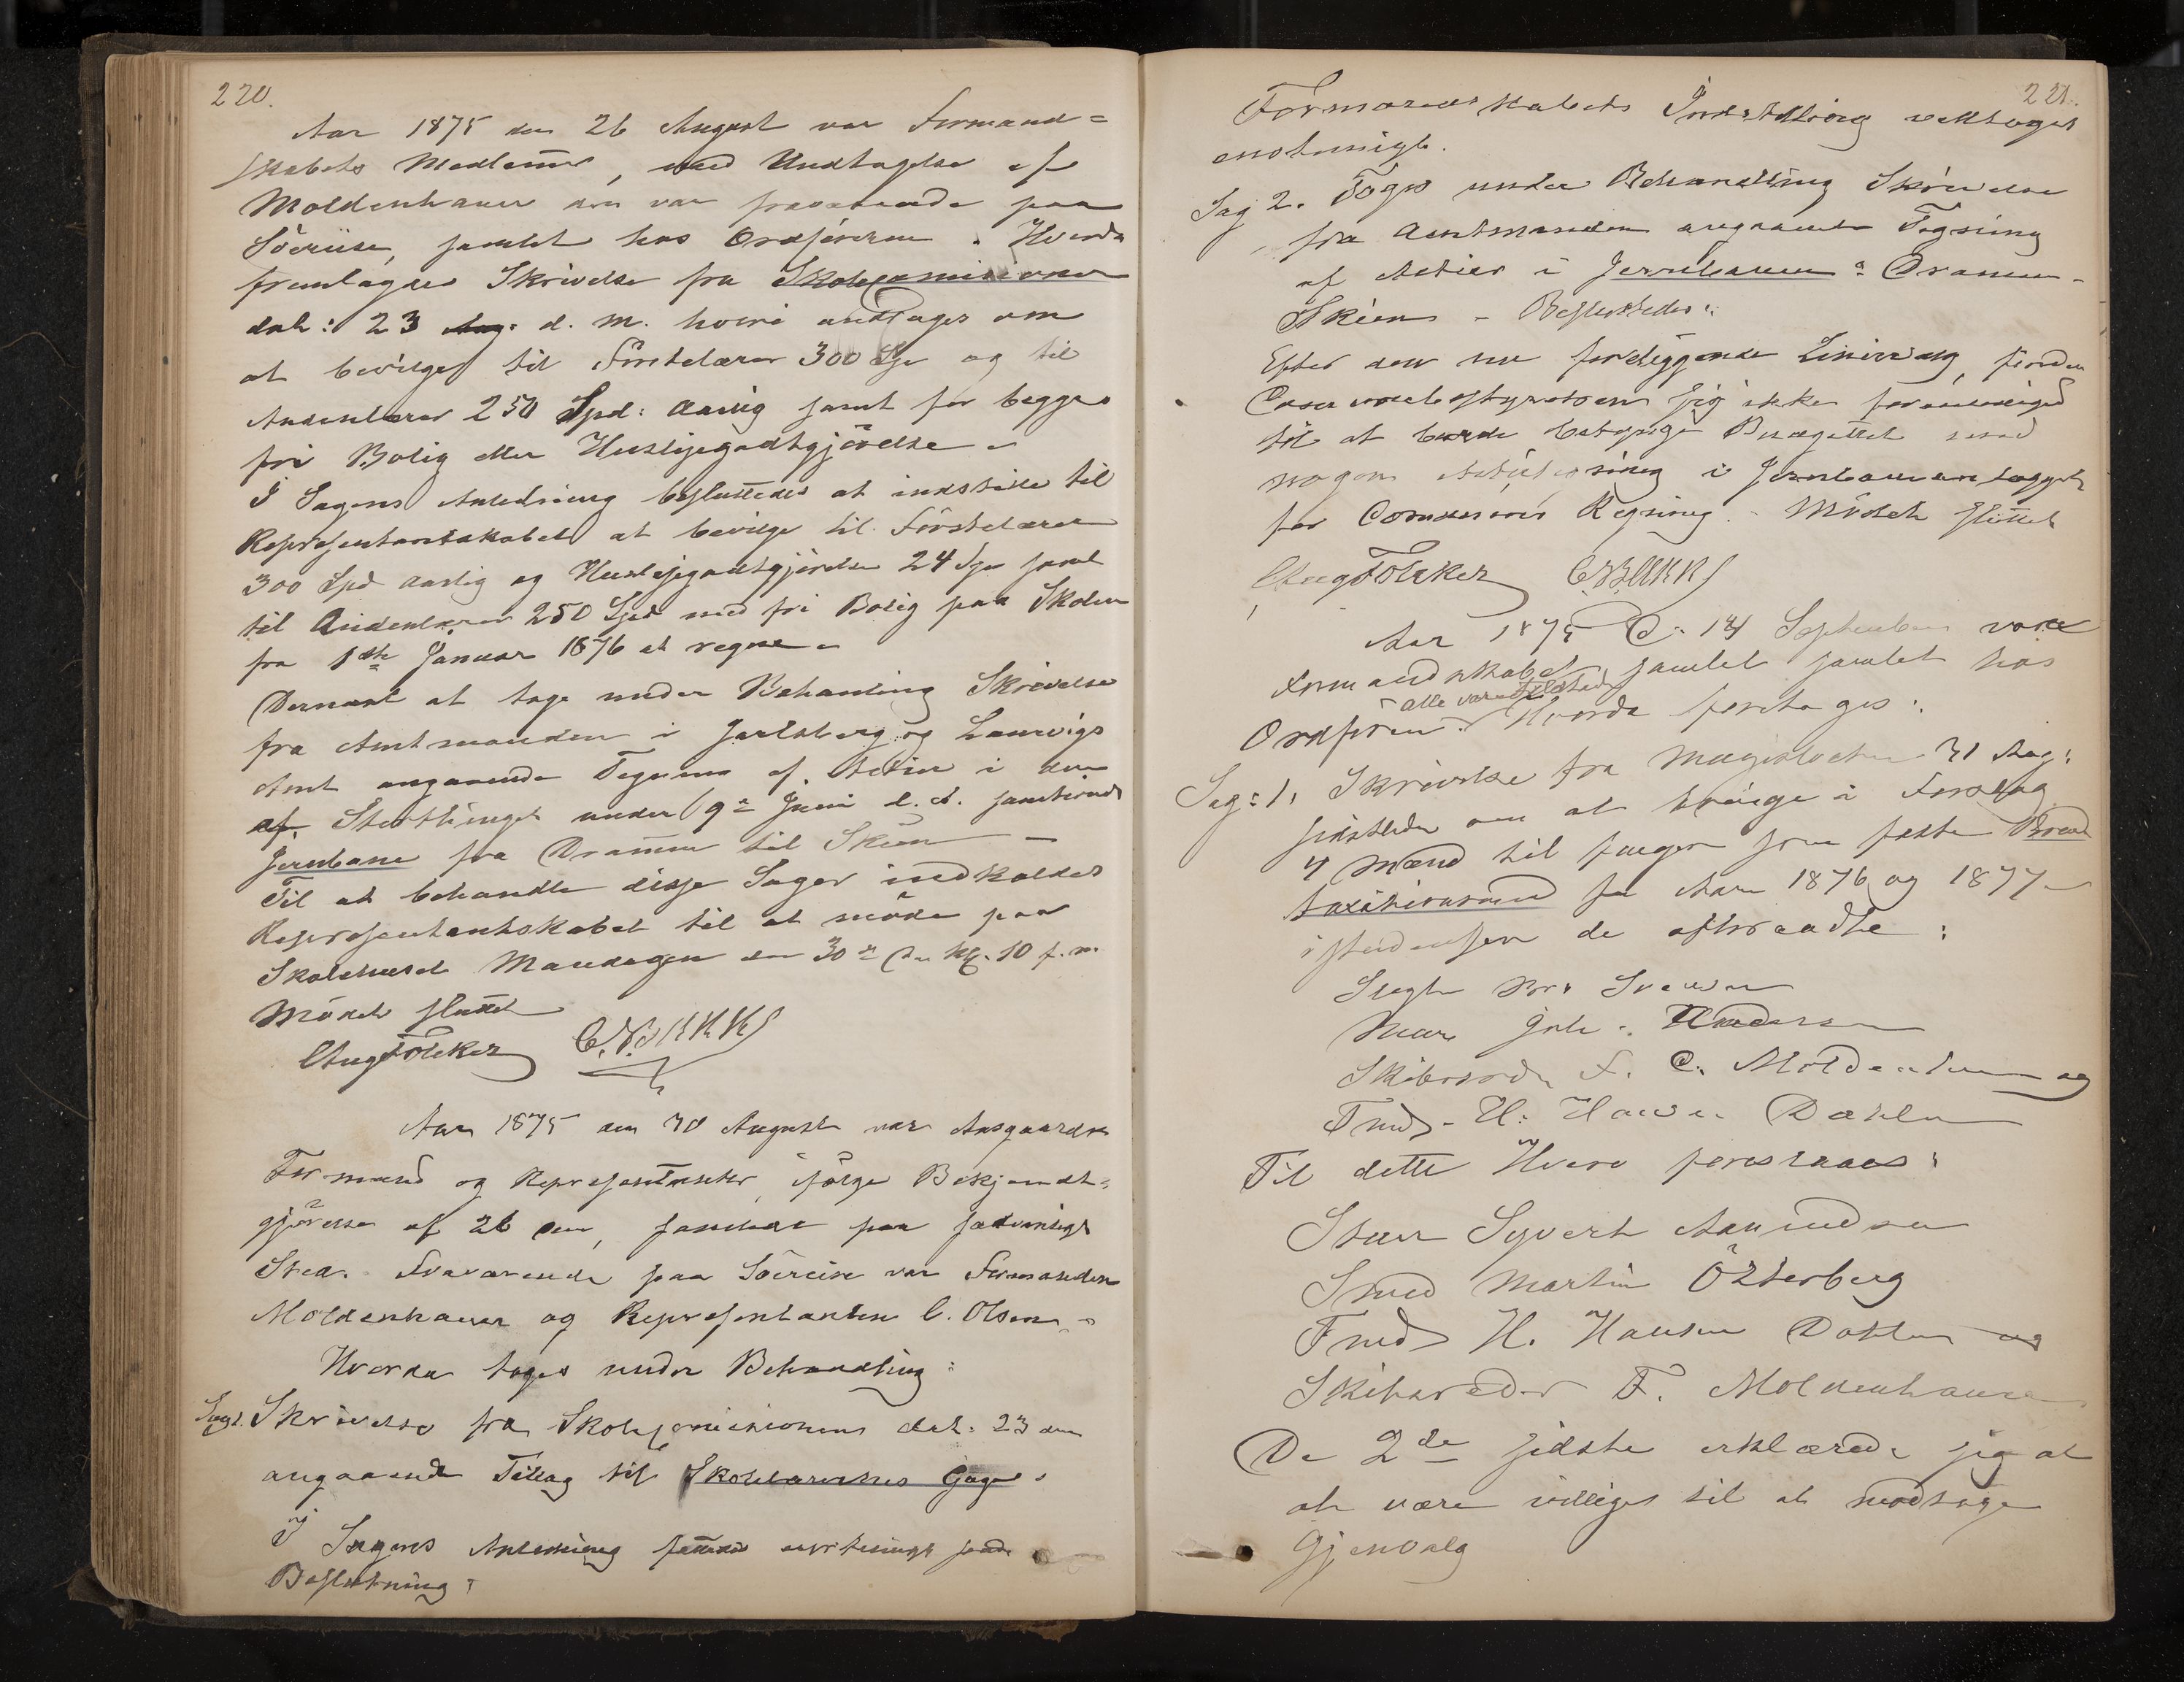 220.
Aar 1875 den 26 August var Formand=
skabets Medlemmer, med Undtagelse af
Moldenhauer som var fraværende paa
Söreise, samlet hos Ordföreren. Hvorda
fremlagdes Skrivelse fra Skolecommissionen
dat: 23 Aug: d. M. hvori andrages om
at bevilges til Förstelærer 300 Spd og til
Andenlærer 250 Spd: aarlig samt for begge
fri Bolig eller Huslejegodtgjörelse –
I Sagens Anledning besluttedes at indstille til
Representantskabet at bevilge til Förstelærer
300 Spd aarlig og Huslejegodtgjörelse 24 Spd samt
til Andenlærer 250 Spd med fri Bolig paa Skolen
fra 1ste Januar 1876 at regne –
Dernæst at tage under Behandling Skrivelse
fra Amtmanden i Jarlsberg og Laurvigs
Amt angaaende Tegning af Actier i den
af Storthinget under 9de Juni d. A. sanctionerede
Jernbane fra Drammen til Skien –
Til at behandle disse Sager indkaldes
Representantskabet til at möde paa
Skolehuset Mandagen den 30te ds Kl. 10 f. m.
Mödet sluttet
Aug Fölcker
Aar 1875 den 30 August var Aasgaards
Formænd og Representanter, ifölge Bekjendt=
gjörelse af 26 ds, samlede paa sædvanligt
Sted. Fraværende paa Söreise var Formanden
Moldenhauer og Representanten C. Olsen –
Hvorda toges under Behandling:
Sag 1. Skrivelse fra Skolecommissionen dat. 23 ds
angaaende Tillæg til Skolelærernes Gage.
I Sagens Anledning fattedes eenstemmigt saad.
Beslutning:
221.
Formandskabets Indstilling vedtoges
enstemmigt.
Sag 2. Toges under Behandling Skrivelse
fra Amtmanden angaaende Tegning
af Actier i Jernbanen: Drammen-
Skien – Besluttedes:
Efter den nu foreliggende Liniering, finder
Communebestyrelsen sig ikke foranlediget
til at burde bebyrde Budgettet med
nogen Actietegning i Jernbaneanlægget
for Communens Regning. – Mödet sluttet
Aug Fölcker
Aar 1875 d. 14 September vare
Formandskabet samlet samlet hos
alle vare tilstede
Ordföreren. Hvorda foretages:
Sag: 1. Skrivelse fra Magistraten 31 Aug:
sidstleden om at vælge i Forslag
4 Mænd til fungere som faste Brand
taxationsmænd for Aarene 1876 og 1877
istedenfor de aftraadte:
Skibsreder F. C. Moldenhauer og
Smed H. Hansen Dahlen
Til dette Hverv foreslaaes:
Syvert Amundsen
Smed Martin Österberg
Smed H. Hansen Dahlen og
Skibsreder F. Moldenhauer
De 2de sidste erklærede sig at
at være villige til at modtage
Gjenvalg